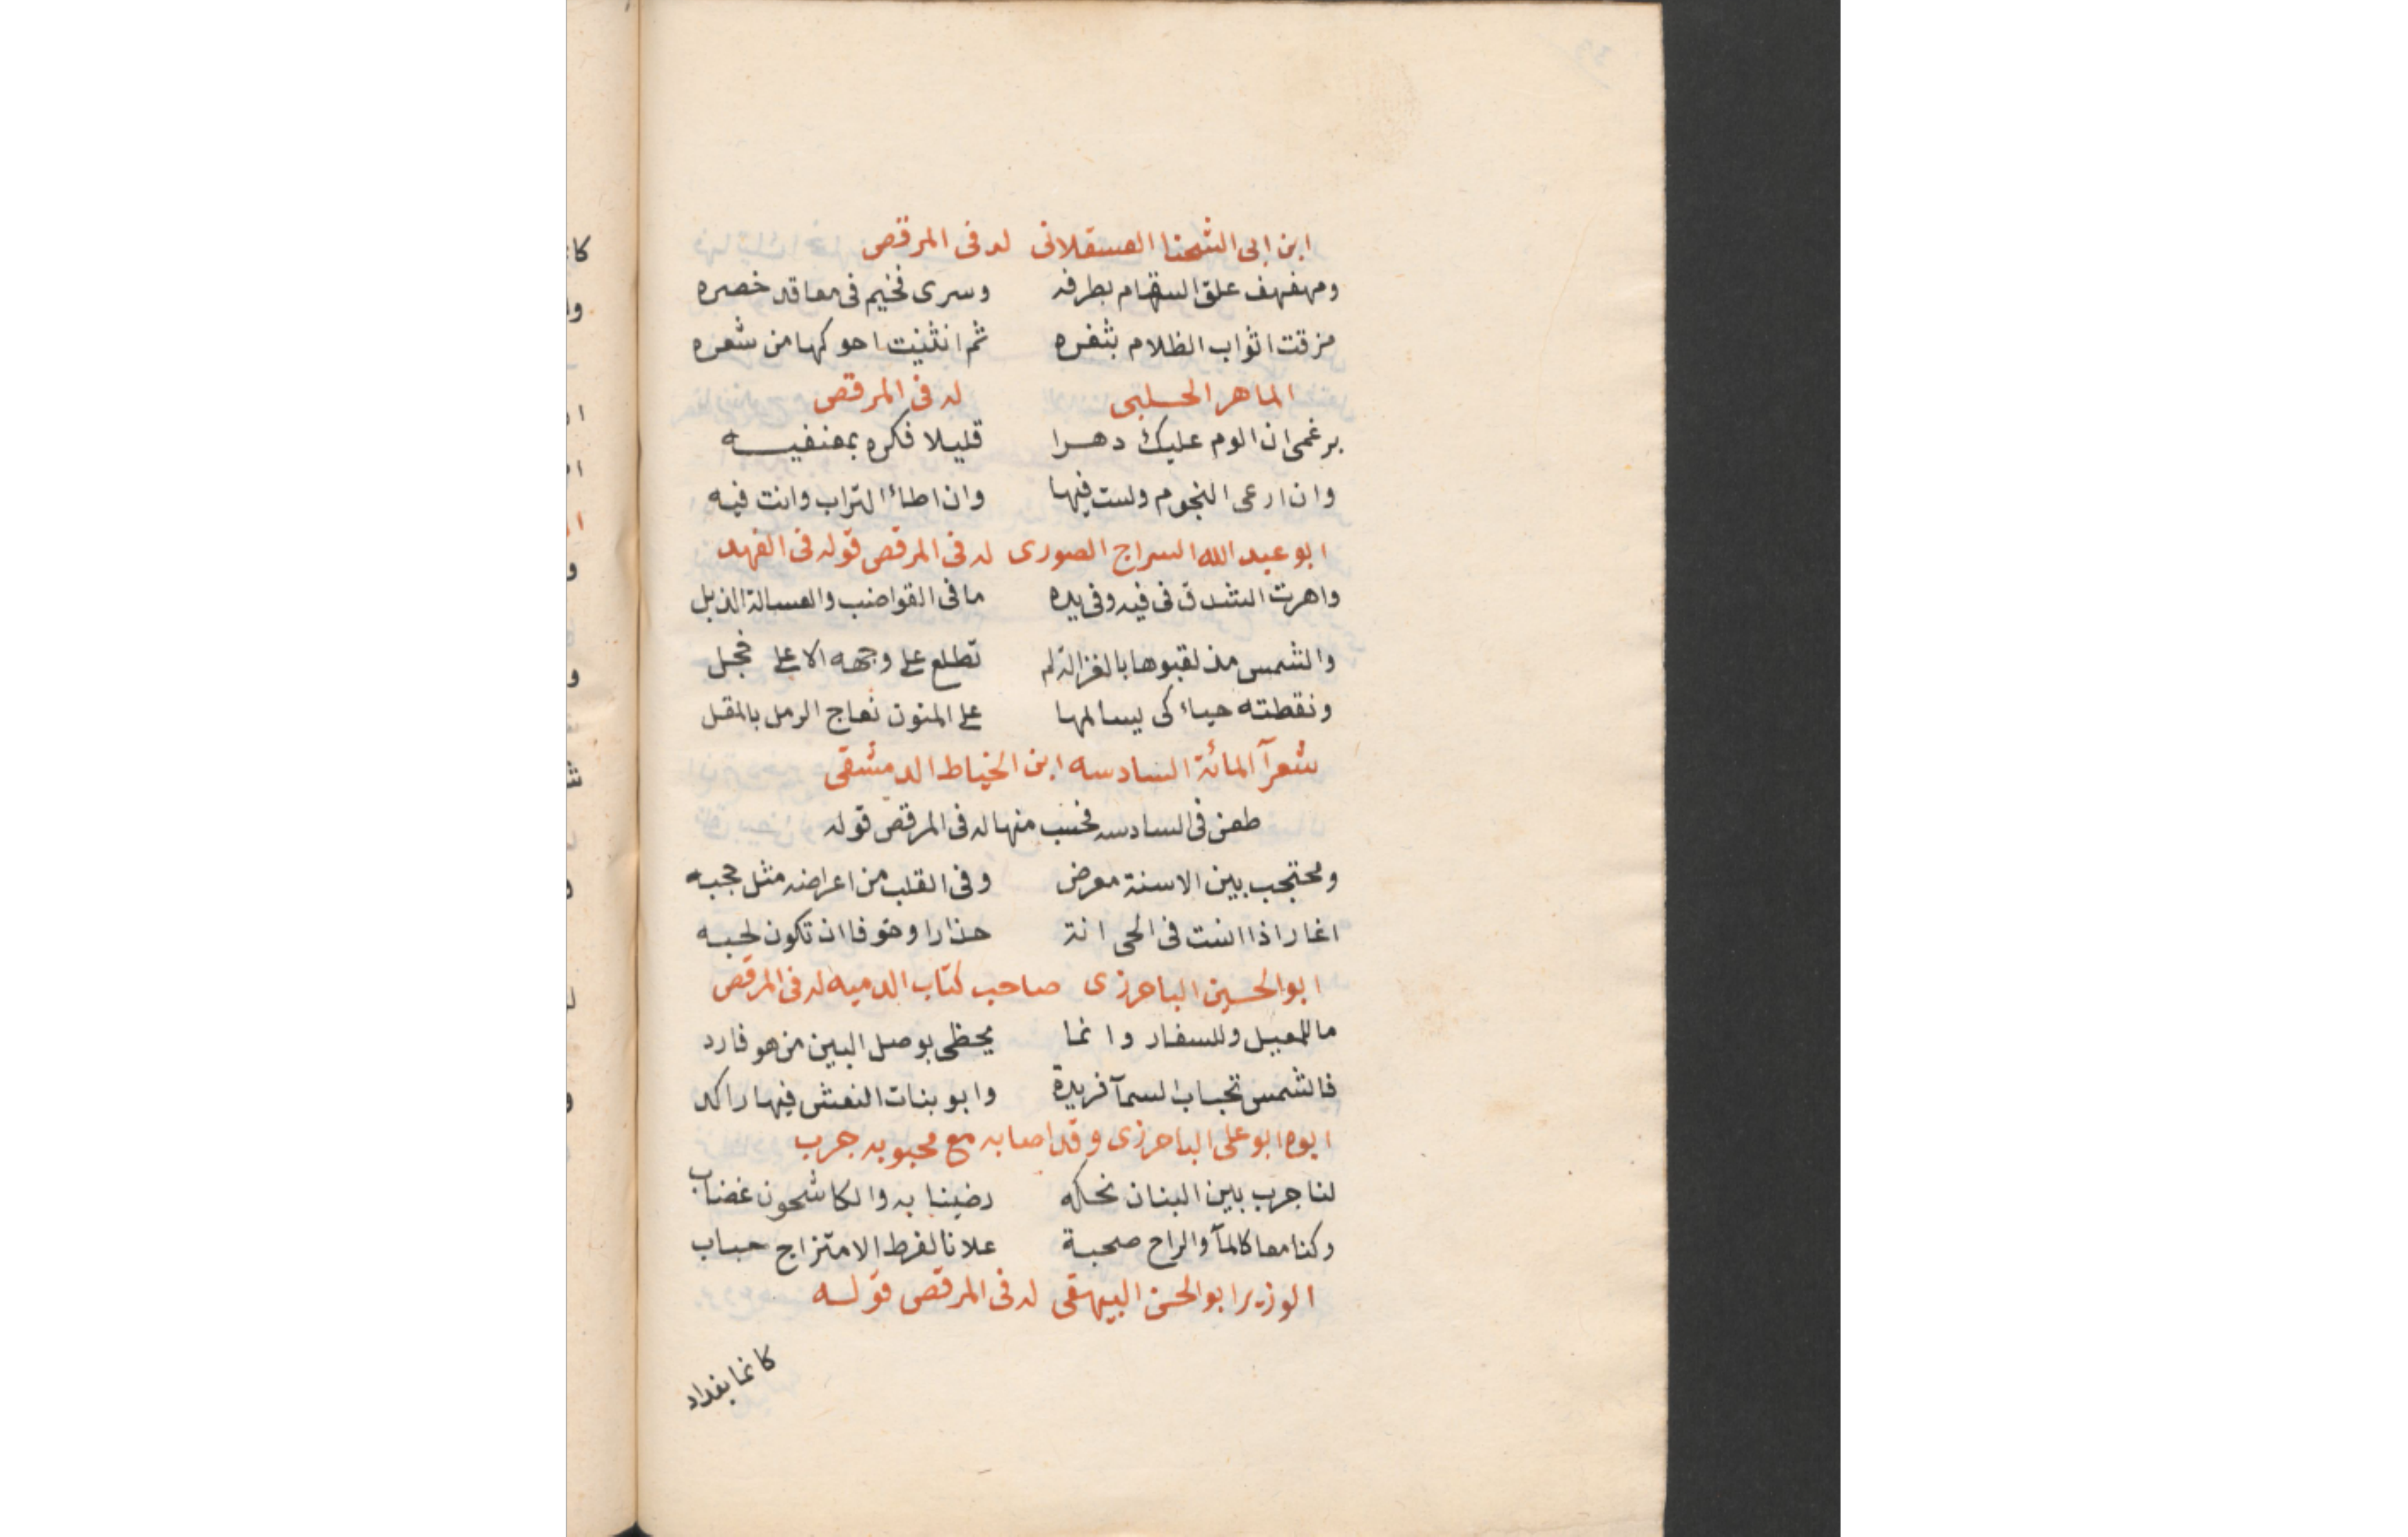 ابن ابى الشحنا العسقلانى له فى المرقص
ومهفهف علق السقام بطرفه وسرى فخيم فى معاقد خصره
مزقت اثواب الظلام بثغره ثم انثنيت احوكها من شعره
الماهر الحلبى له فى المرقص
برغمى ان الوم عليك دهرا قليلا فكره بمعنفيه
وان ارعى النجوم ولست فيها وان اطاء التراب وانت فيه
ابو عبد الله السراج الصورى له فى المرقص قوله فى الفهد
واهرت الشدق فى فيه وفى يده ما فى القواضب والعسالة الذبل
والشمس مذ لقبوها بالغزالة لم تطلع على وجهه الا على خجل
ونقطته حياء كى يسالمها على المنون نعاج الرمل بالمقل
شعرآ المائة السادسه ابن الخياط الدمشقى
طعن فى السادسه فحسب منها له فى المرقص قوله
ومحتجب بين الاسنة معرض وفى القلب من اعراضه مثل حجبه
اغار اذا انست فى الحى انة حذارا وخوفا ان تكون لحبه
ابو الحسين الباخرزى صاحب كتاب الدميه له فى المرقص
ما للمعيل وللسفار وانما يحظى بوصل البين من هو فارد
فالشمس تجباب السمآ فريدة وابو بنات النعش فيها راكد
ابوه ابو على الباخرزى وقد اصابه مع محبوبه جرب
لنا جرب بين البنان نحكه رضينا به والكاشحون غضاب
وكنا معا كالمآ والراح صحبة علانا لفرط الامتزاج حباب
الوزير ابو الحسن البيهقى له فى المرقص قوله
كانما بغداد